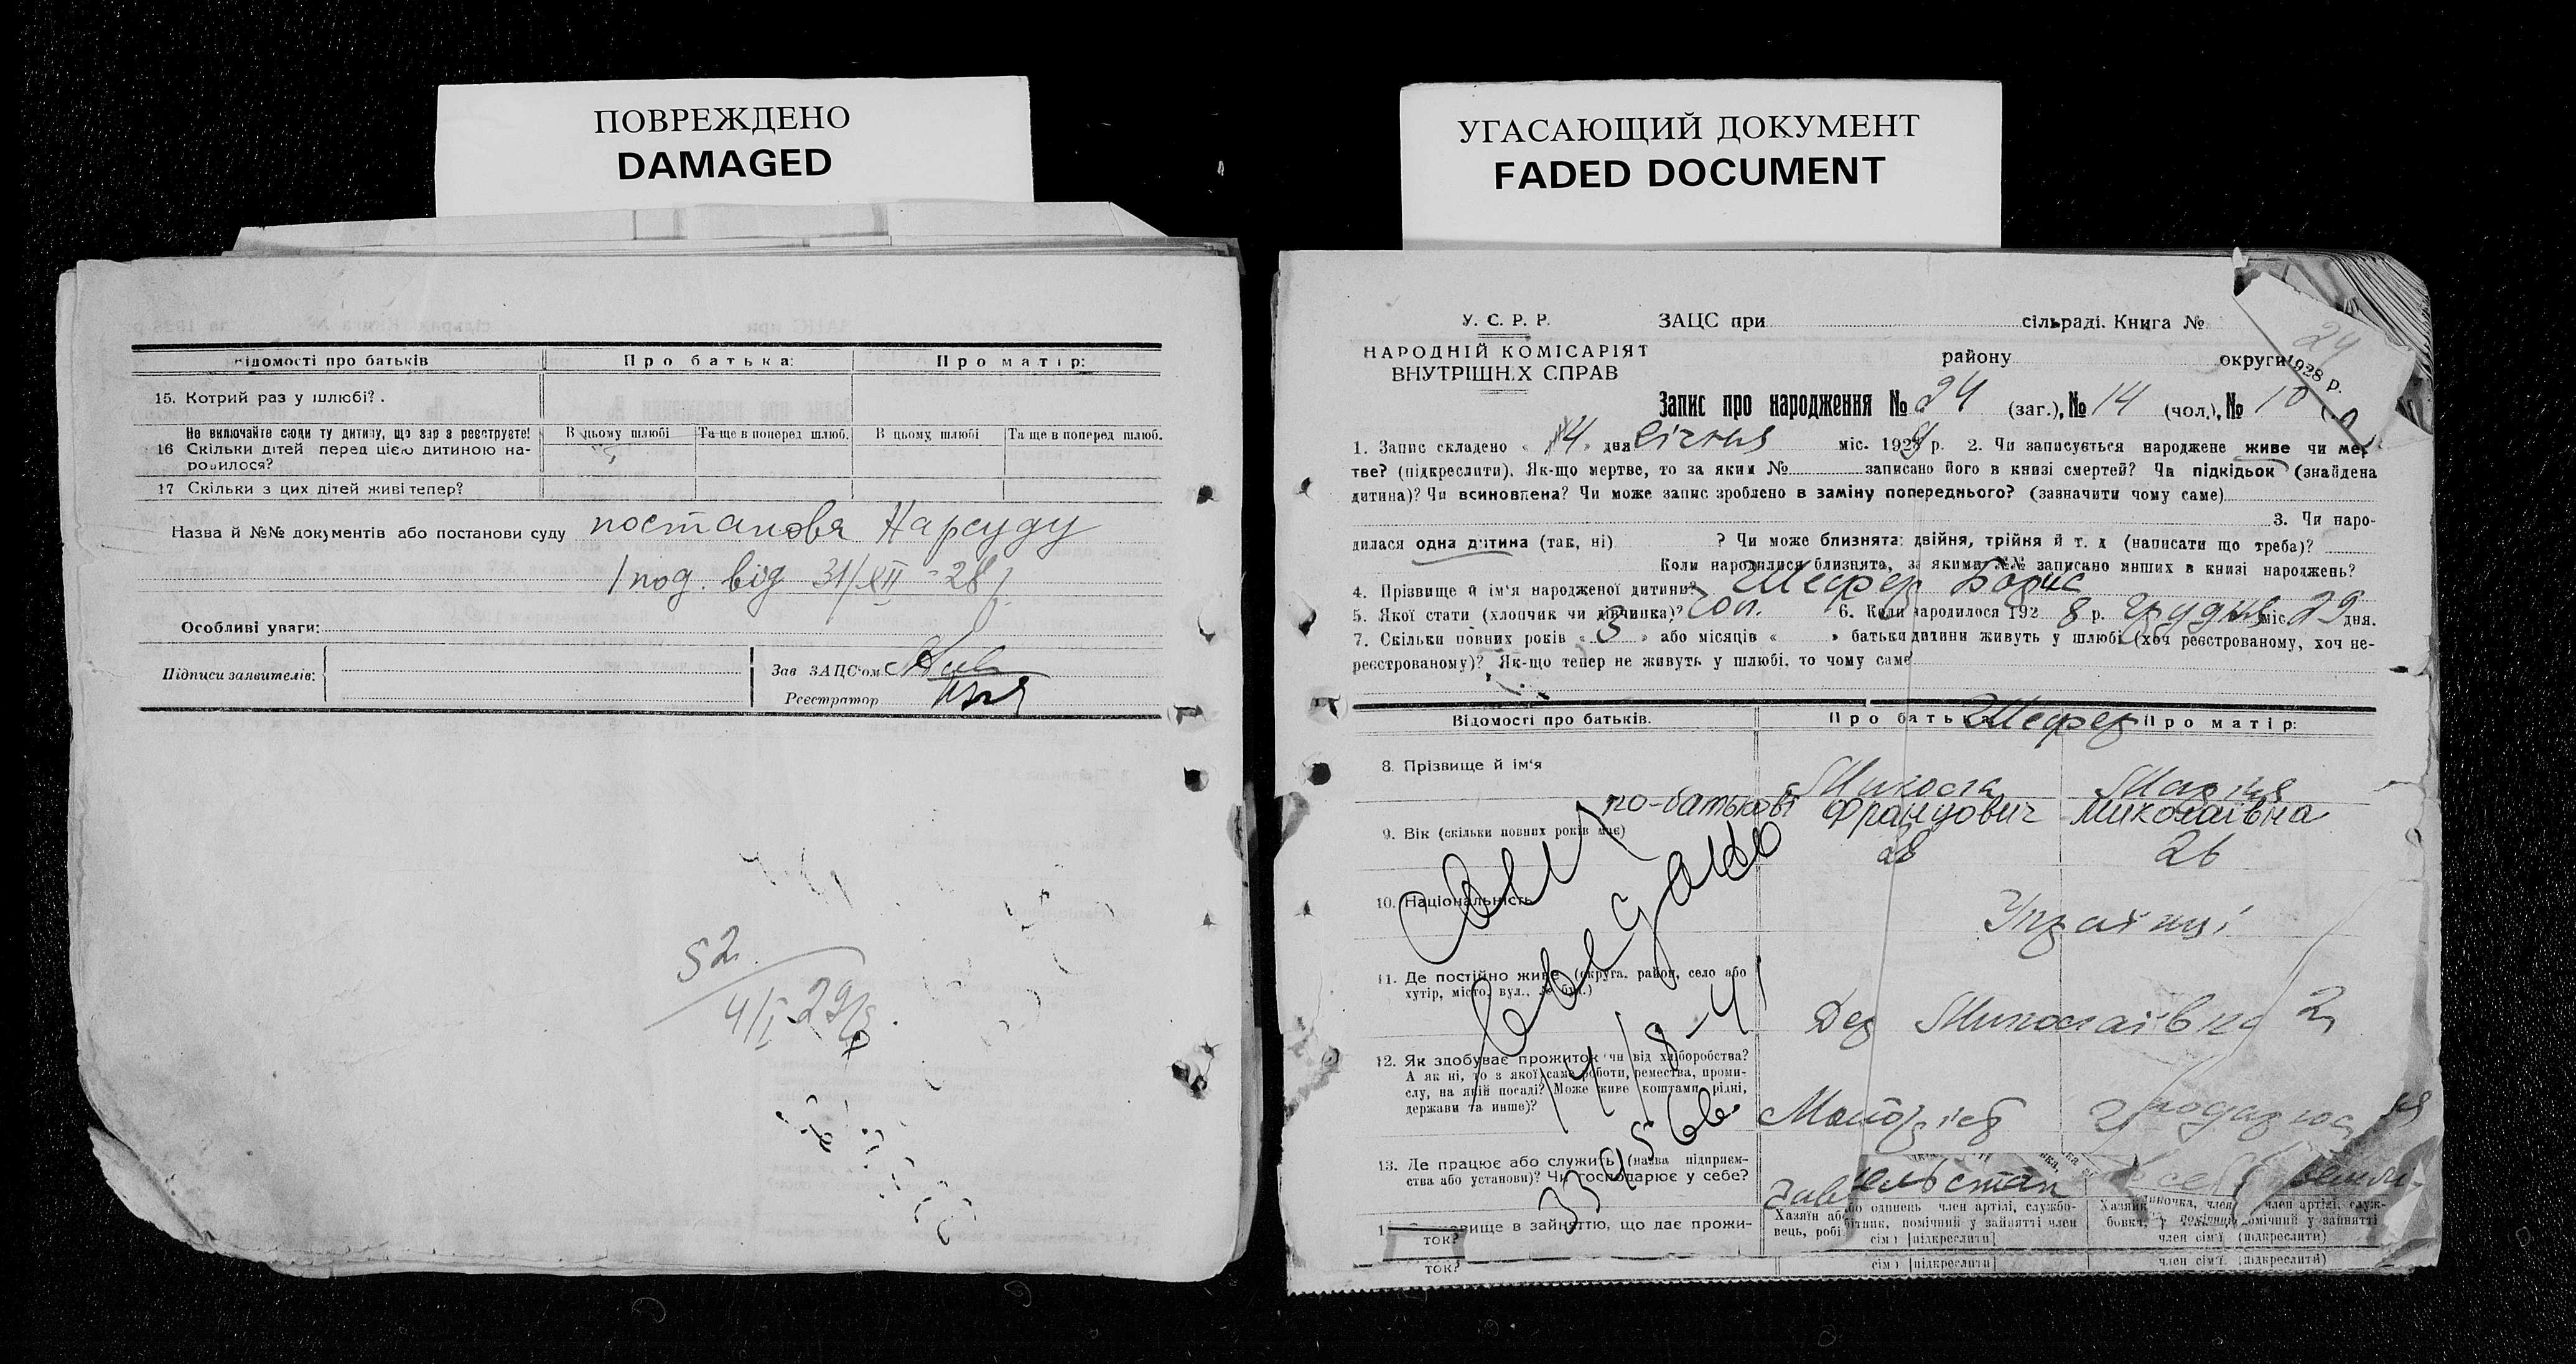 ПОВРЕЖДЕНО
DAMAGED
відомості про батьків
Про батька:
Про матір:
15. Котрий раз у шлюбі?.
Не включайте сюди ту дитину, що зараз реєструєте!
В цьому шлюбі
Та ще в поперед шлюб.
В цьому шлюбі
Та ще в поперед шлюб.
16 Скільки дітей перед цією дитиною на-
родилося?
17 Скільки з цих дітей живі тепер?
Назва й №№ документів або постанови суду постанова Нарсуду
/под. від 31/XII-28/
Особливі уваги:
Підписи заявителів:
Зав ЗАЦС'ом
Реєстратор
52
4/I 29
УГАСАЮЩИЙ ДОКУМЕНТ
FADED DOCUMENT
У. С. Р. Р.
НАРОДНІЙ КОМІСАРІЯТ
ВНУТРІШНІХ СПРАВ
ЗАЦС при сільраді. Книга №
24
району округи 1928 р.
Запис про народження № 24 (заг.), № 14 (чол.), № 10
1. Запис складено « 4 » дня січня міс. 1929 р. 2. Чи записується народжене живе чи мер-
тве? (підкреслити). Як-що мертве, то за яким № записано його в книзі смертей? Чи підкідьок (знайдена
дитина)? Чи всиновлена? Чи може запис зроблено в заміну попереднього? (зазначити чому саме)
3. Чи наро-
дилася одна дитина (так, ні) ? Чи може близнята: двійня, трійня й т. д (написати що треба)?
Коли народилися близнята, за якими №№ записано инших в книзі народжень?
4. Прізвище й ім'я народженої дитини? Шефер Борис
5. Якої стати (хлопчик чи дівчинка)? чол. 6. Коли народилося 192 8 р. грудня міс 29 дня.
7. Скільки повних років « 3 » або місяців « » батьки дитини живуть у шлюбі (хоч реєстрованому, хоч не-
реєстрованому)? Як-що тепер не живуть у шлюбі, то чому саме
Відомості про батьків.
Про батька
Шефер
Про матір:
8. Прізвище й ім'я
Микола
Марія
по-батькові Францович Миколаївна
9. Вік (скільки повних років має)
28
26
10. Національність
Українці
11. Де постійно живе (округа, район, село або
хутір, місто, вул., № буд.)
Миколаївна 2
14/8-41
12. Як здобуває прожиток чи від хліборобства?
А як ні, то з якої саме роботи, ремества, проми-
слу, на якій посаді? Може живе коштами рідні,
держави та инше)?
13. Де працює або служить (назва підприєм-
ства або установи)? Чи господарює у себе?
вище в зайняттю, що дає прожи-
ток?
Хазяїн або одинець член артілі, службо-
вець, робітник, помічний у зайнятті член
сім'ї (підкреслити)
член артілі, служ-
бовка, помічний у зайнятті
член сім'ї (підкреслити)
ток?
сім'ї (підкреслити)
член сім'ї (підкреслити)